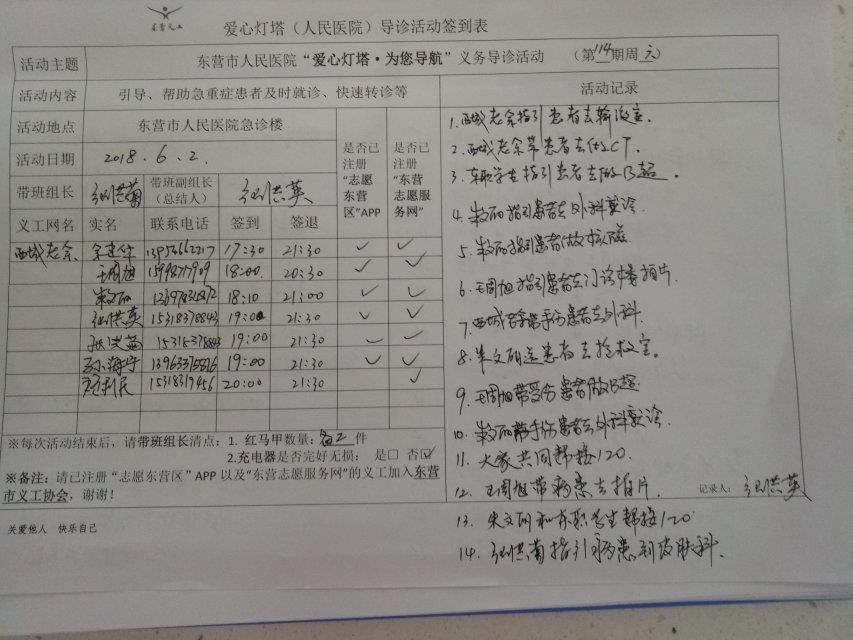 东营义工
爱心灯塔（人民医院）导诊活动签到表
活动主题 东营市人民医院“爱心灯塔·为您导航”义务导诊活动 （第114期周六）
活动内容 引导、帮助急重症患者及时就诊、快速转诊等 活动记录
活动地点 东营市人民医院急诊楼
活动日期 2018.6.2.
带班组长 带班副组长（总结人） 张洪英
是否已注册“志愿东营区”APP
是否已注册“东营志愿服务网”
义工网名 实名 联系电话 签到 签退
西城老余 17:30 21:30 ✓ ✓
王周旭 18:00 20:30 ✓ ✓
朱文丽 18:10 21:00 ✓ ✓
张洪英 15318370843 19:00 21:30 ✓ ✓
19:00 21:30 ✓ ✓
孙海宁 19:00 21:30 ✓ ✓
20:00 21:30 ✓
※每次活动结束后，请带班组长清点：1. 红马甲数量： 件
2.充电器是否完好无损： 是□ 否☑
※备注：请已注册“志愿东营区”APP以及“东营志愿服务网”的义工加入东营
市义工协会，谢谢！
关爱他人 快乐自己
1.西城老余指引患者去输液室.
2.西城老余带患者去做CT.
3.东职学生指引患者去做B超.
4.朱文丽指引患者去外科就诊
5.朱文丽指引患者做核磁
6.王周旭指引患者去门诊楼拍片
7.西城老余带手伤患者去外科.
8.朱文丽送患者去抢救室.
9.王周旭带受伤患者做B超
10.朱文丽带手伤患者去外科就诊
11.大家共同帮接120.
12.王周旭带病患去拍片.
记录人： 张洪英
13.朱文丽和东职学生帮接120
14.指引病患到皮肤科.